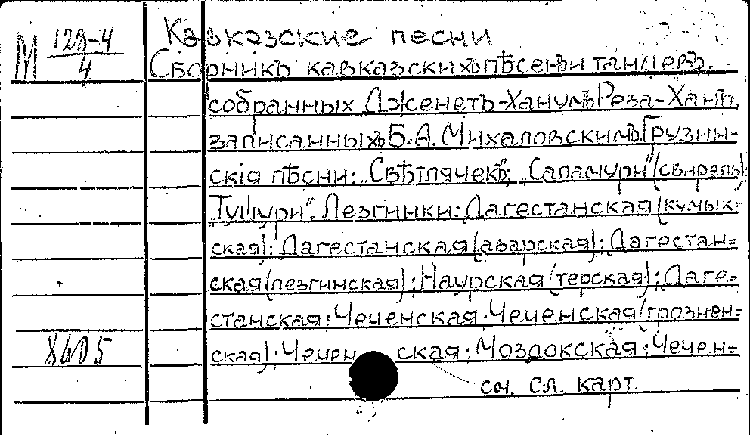 М 123-4/4
Кавказские песни
Сборникъ кавказскихъ пѣсенъ и танцевъ.
собранных Дженетъ-Ханумъ Реза-Ханъ,
записанныхъ Б.А. Михаловскимъ Грузин-
скія пѣсни: „Свѣтлячекъ“; „Саламури“ (свирель);
„Тушури“. Лезгинки: Дагестанская (кумык-
ская); Дагестанская (аварская); Дагестан-
ская (лезгинская); Наурская (терская); Даге-
станская; Чеченская; Чеченская (грознен-
8405
ская); Чеченская; Моздокская; Чечен-
см. сл. карт.